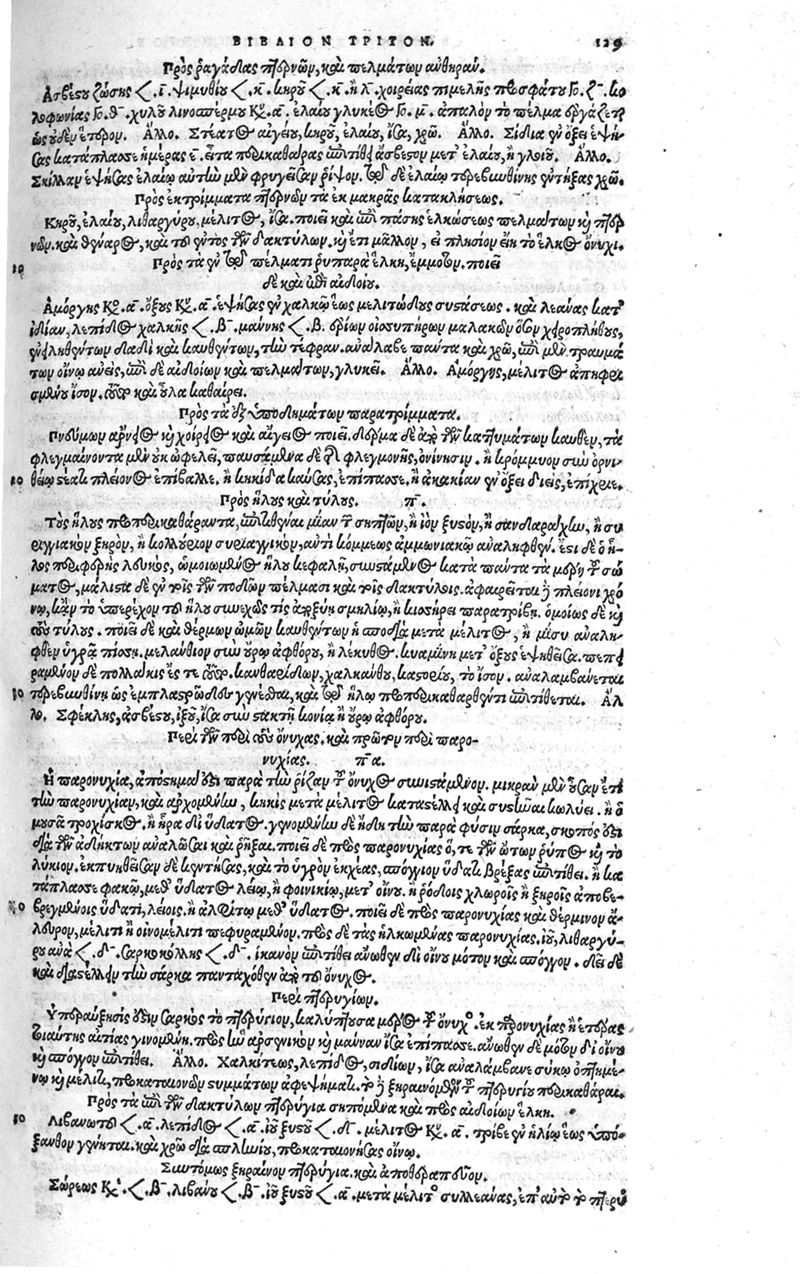 ΒΙΒΛΙΟΝ ΤΡΙΤΟΝ. 129
Πρὸς ῥαγάδας πτερνῶν, καὶ πελμάτων ἀνθηράν.
Ἀσβέστου ζώσης 𐅻. ι. ψιμυθίου 𐅻. κ. κηροῦ 𐅻. κ. ἢ λ. χοιρείας πιμελῆς προσφάτου Γο. ζ. κο-
λοφωνίας Γο. θ. χυλοῦ λινοσπέρμου Κυ. α. ἐλαίου γλυκέος Γο. μ. ἁπαλὸν τὸ πέλμα ἐργάζεται
ὡς οὐδὲν ἕτερον. Ἄλλο. Στέατος αἰγείου, κηροῦ, ἐλαίου, ἴσα, χρῶ. Ἄλλο. Σίδια ἐν ὄξει ἑψή-
σας κατάπλασσε ἡμέρας ε. εἶτα περικαθάρας ἐπιτίθει ἄσβεστον μετ' ἐλαίου, ἢ γλοιοῦ. Ἄλλο.
Σκίλλαν ἑψήσας ἐλαίῳ αὐτὴν μὲν φρυγεῖσαν ῥίψον. τῷ δὲ ἐλαίῳ τερεβινθίνης ἐντήξας χρῶ.
Πρὸς ἐκτρίμματα πτερνῶν τὰ ἐκ μακρᾶς κατακλήσεως.
Κηροῦ, ἐλαίου, λιθαργύρου, μέλιτος, ἴσα. ποιεῖ καὶ ἐπὶ πάσης ἑλκώσεως πελμάτων καὶ πτερ-
νῶν. καὶ θέναρος, καὶ τοῦ ἐντὸς τῶν δακτύλων. καὶ ἔτι μᾶλλον, εἰ πλησίον εἴη τὸ ἕλκος ὄνυχι.
10 Πρὸς τὰ ἐν τῷ πέλματι ῥυπαρὰ ἕλκη, ἔμμοτον. ποιεῖ
δὲ καὶ ἐπὶ αἰδοίου.
Ἀμόργης Κυ. α. ὄξους Κυ. α. ἑψήσας ἐν χαλκῷ ἕως μελιτώδους συστάσεως. καὶ λεάνας κατ'
ἰδίαν, λεπίδος χαλκῆς 𐅻. β. μάννης 𐅻. β. ἐρίων οἰσυπήρων μαλακῶν ὅσον χειροπληθοῦς,
ἐνειληθέντων δαδὶ καὶ καυθέντων, τὴν τέφραν. ἀνάλαβε πάντα καὶ χρῶ, ἐπὶ μὲν τραυμά-
των οἴνῳ ἀνεὶς, ἐπὶ δὲ αἰδοίων καὶ πελμάτων, γλυκεῖ. Ἄλλο. Ἀμόργης, μέλιτος ἀπηφρι-
σμένου ἴσον. τοῦτο καὶ οὖλα καθαίρει.
Πρὸς τὰ ἐξ ὑποδημάτων παρατρίμματα.
Πνεύμων ἄρνειος καὶ χοίρειος καὶ αἴγειος ποιεῖ. δέρμα δὲ ἀπὸ τῶν καττυμάτων καυθὲν, τὰ
φλεγμαίνοντα μὲν οὐκ ὠφελεῖ, παυσάμενα δὲ τῆς φλεγμονῆς, ὀνίνησιν. ἢ κρόμμυον σὺν ὀρνι-
20 θείῳ στέατι πλεῖον ἐπίβαλλε. ἢ κηκίδα καύσας, ἐπίπασσε. ἢ ἀκακίαν ἐν ὄξει διεὶς, ἐπίχριε.
Πρὸς ἥλους καὶ τύλους. π.
Τοὺς ἥλους προπερικαθάραντα, ἐπιτιθέναι μίαν τῶν σηπτῶν, ἢ ἰὸν ξυστὸν, ἢ σανδαράχην, ἢ συ-
ριγγιακὸν ξηρὸν, ἢ κολλύριον συριγγικὸν, ἀντὶ κόμμεως ἀμμωνιακῷ ἀναληφθέν. ἔστι δὲ ὁ ἧ-
λος περιφερὴς λευκὸς, ὡμοιωμένος ἥλου κεφαλῇ, συνιστάμενος κατὰ πάντα τὰ μέρη τοῦ σώ-
ματος, μάλιστα δὲ ἐν τοῖς τῶν ποδῶν πέλμασι καὶ τοῖς δακτύλοις. ἀφαιρεῖται ἐν πλείονι χρό-
νῳ, κἂν τὸ ὑπερέχον τοῦ ἥλου συνεχῶς τις ἀποξύῃ σμηλίῳ, ἢ κισσήρει παρατρίβῃ. ὁμοίως δὲ καὶ
τοὺς τύλους. ποιεῖ δὲ καὶ θέρμων ὠμῶν καυθέντων ἡ σποδιὰ μετὰ μέλιτος, ἢ μίσυ ἀναλη-
φθὲν ὑγρᾷ πίσσῃ. μελάνθιον σὺν οὔρῳ ἀφθόρου, ἢ λέκυθος κυαμίνη μετ' ὄξους ἑψηθεῖσα. πεπει-
ραμένον δὲ πολλάκις ἐστὶ τοῦτο. κανθαρίδων, χαλκάνθου, καστορίου, τὸ ἴσον. ἀναλαμβάνεται
30 τερεβινθίνῃ ὡς ἐμπλαστρῶδες γενέσθαι, καὶ τῷ ἥλῳ προπερικαθαρθέντι ἐπιτίθεται. Ἄλ-
λο. Σφέκλης, ἀσβέστου, ἰξοῦ, ἴσα σὺν στακτῇ κονίᾳ ἢ οὔρῳ ἀφθόρου.
Περὶ τῶν περὶ τοὺς ὄνυχας. καὶ πρῶτον περὶ παρο-
νυχίας. πα.
Ἡ παρονυχία, ἀπόστημά ἐστι παρὰ τὴν ῥίζαν τοῦ ὄνυχος συνιστάμενον. μικρὰν μὲν οὖσαν ἔτι
τὴν παρονυχίαν, καὶ ἀρχομένην, κηκὶς μετὰ μέλιτος καταστέλλει καὶ συστῆναι κωλύει. ἢ ὁ
μούσα τροχίσκος, ἢ ἥρα δι' ὕδατος. γενομένην δὲ ἤδη τὴν παρὰ φύσιν σάρκα, σκοπὸς ἐστὶ
διὰ τῶν ἀδήκτων ἀναλῶσαι καὶ ῥῆξαι. ποιεῖ δὲ πρὸς παρονυχίας ὅ, τε τῶν ὤτων ῥύπος καὶ τὸ
λύκιον. ἐκπυηθεῖσαν δὲ κεντήσας, καὶ τὸ ὑγρὸν ἐκχέας, σπόγγιον ὕδατι βρέξας ἐπιτίθει. ἢ κα-
τάπλασσε φακῷ, μεθ' ὕδατος λείῳ, ἢ φοινικίῳ, μετ' οἴνου. ἢ ῥόδοις χλωροῖς ἢ ξηροῖς ἀποβε-
40 βρεγμένοις ὕδατι, λείοις. ἢ ἀλφίτῳ μεθ' ὕδατος. ποιεῖ δὲ πρὸς παρονυχίας καὶ θέρμινον ἄ-
λευρον, μέλιτι ἢ οἰνομέλιτι πεφυραμένον. πρὸς δὲ τὰς ἡλκωμένας παρονυχίας. ἰοῦ, λιθαργύ-
ρου ἀνὰ 𐅻. δ. σαρκοκόλλης 𐅻. δ. ἱκανὸν ἐπιτίθει ἄνωθεν δι' οἴνου μότον καὶ σπόγγον. δεῖ δὲ
καὶ διαστέλλειν τὴν σάρκα πανταχόθεν ἀπὸ τοῦ ὄνυχος.
Περὶ πτερυγίων.
Ὑπεραύξησίς ἐστιν σαρκὸς τὸ πτερύγιον, καλύπτουσα μέρος τοῦ ὄνυχος. ἐκ παρονυχίας ἢ ἑτέρας
τοιαύτης αἰτίας γινομένη. πρὸς ἣν ἀρσενικὸν καὶ μάνναν ἴσα ἐπίπασσε. ἄνωθεν δὲ μότον δι' οἴνου
καὶ σπόγγον ἐπιτίθει. Ἄλλο. Χαλκίτεως, λεπίδος, σιδίων, ἴσα ἀναλάμβανε σύκῳ ὀπτημέ-
νῳ καὶ μέλιτι, προκαταιονῶν στυμμάτων ἀφεψήματι. τὸ δὲ ξηραινόμενον τοῦ πτερυγίου περικαθάραι.
Πρὸς τὰ ἐπὶ τῶν δακτύλων πτερύγια σηπόμενα καὶ πρὸς αἰδοίων ἕλκη.
50 Λιβανωτοῦ 𐅻. α. λεπίδος 𐅻. α. ἰοῦ ξυστοῦ 𐅻. δ. μέλιτος Κυ. α. τρίβε ἐν ἡλίῳ ἕως ὑπό-
ξανθον γένηται. καὶ χρῶ διὰ σπληνίου, προκαταιονήσας οἴνῳ.
Συντόμως ξηραῖνον πτερύγια, καὶ ἀποθεραπεῦον.
Σώρεως Κυ. 𐅻. β. λιβάνου 𐅻. β. ἰοῦ ξυστοῦ 𐅻. α. μετὰ μέλιτος συλλεάνας, ἐπ' αὐτὸ τὸ πτερύ